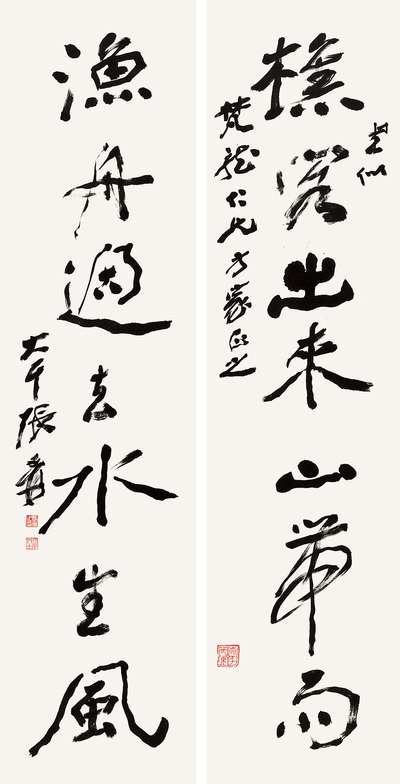 樵客出來山帶雨
書似
梵龍仁兄方家之
漁舟過去水生風
大千張爰